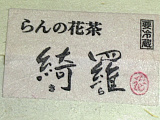 らんの花茶
要冷蔵
綺羅
きら
花